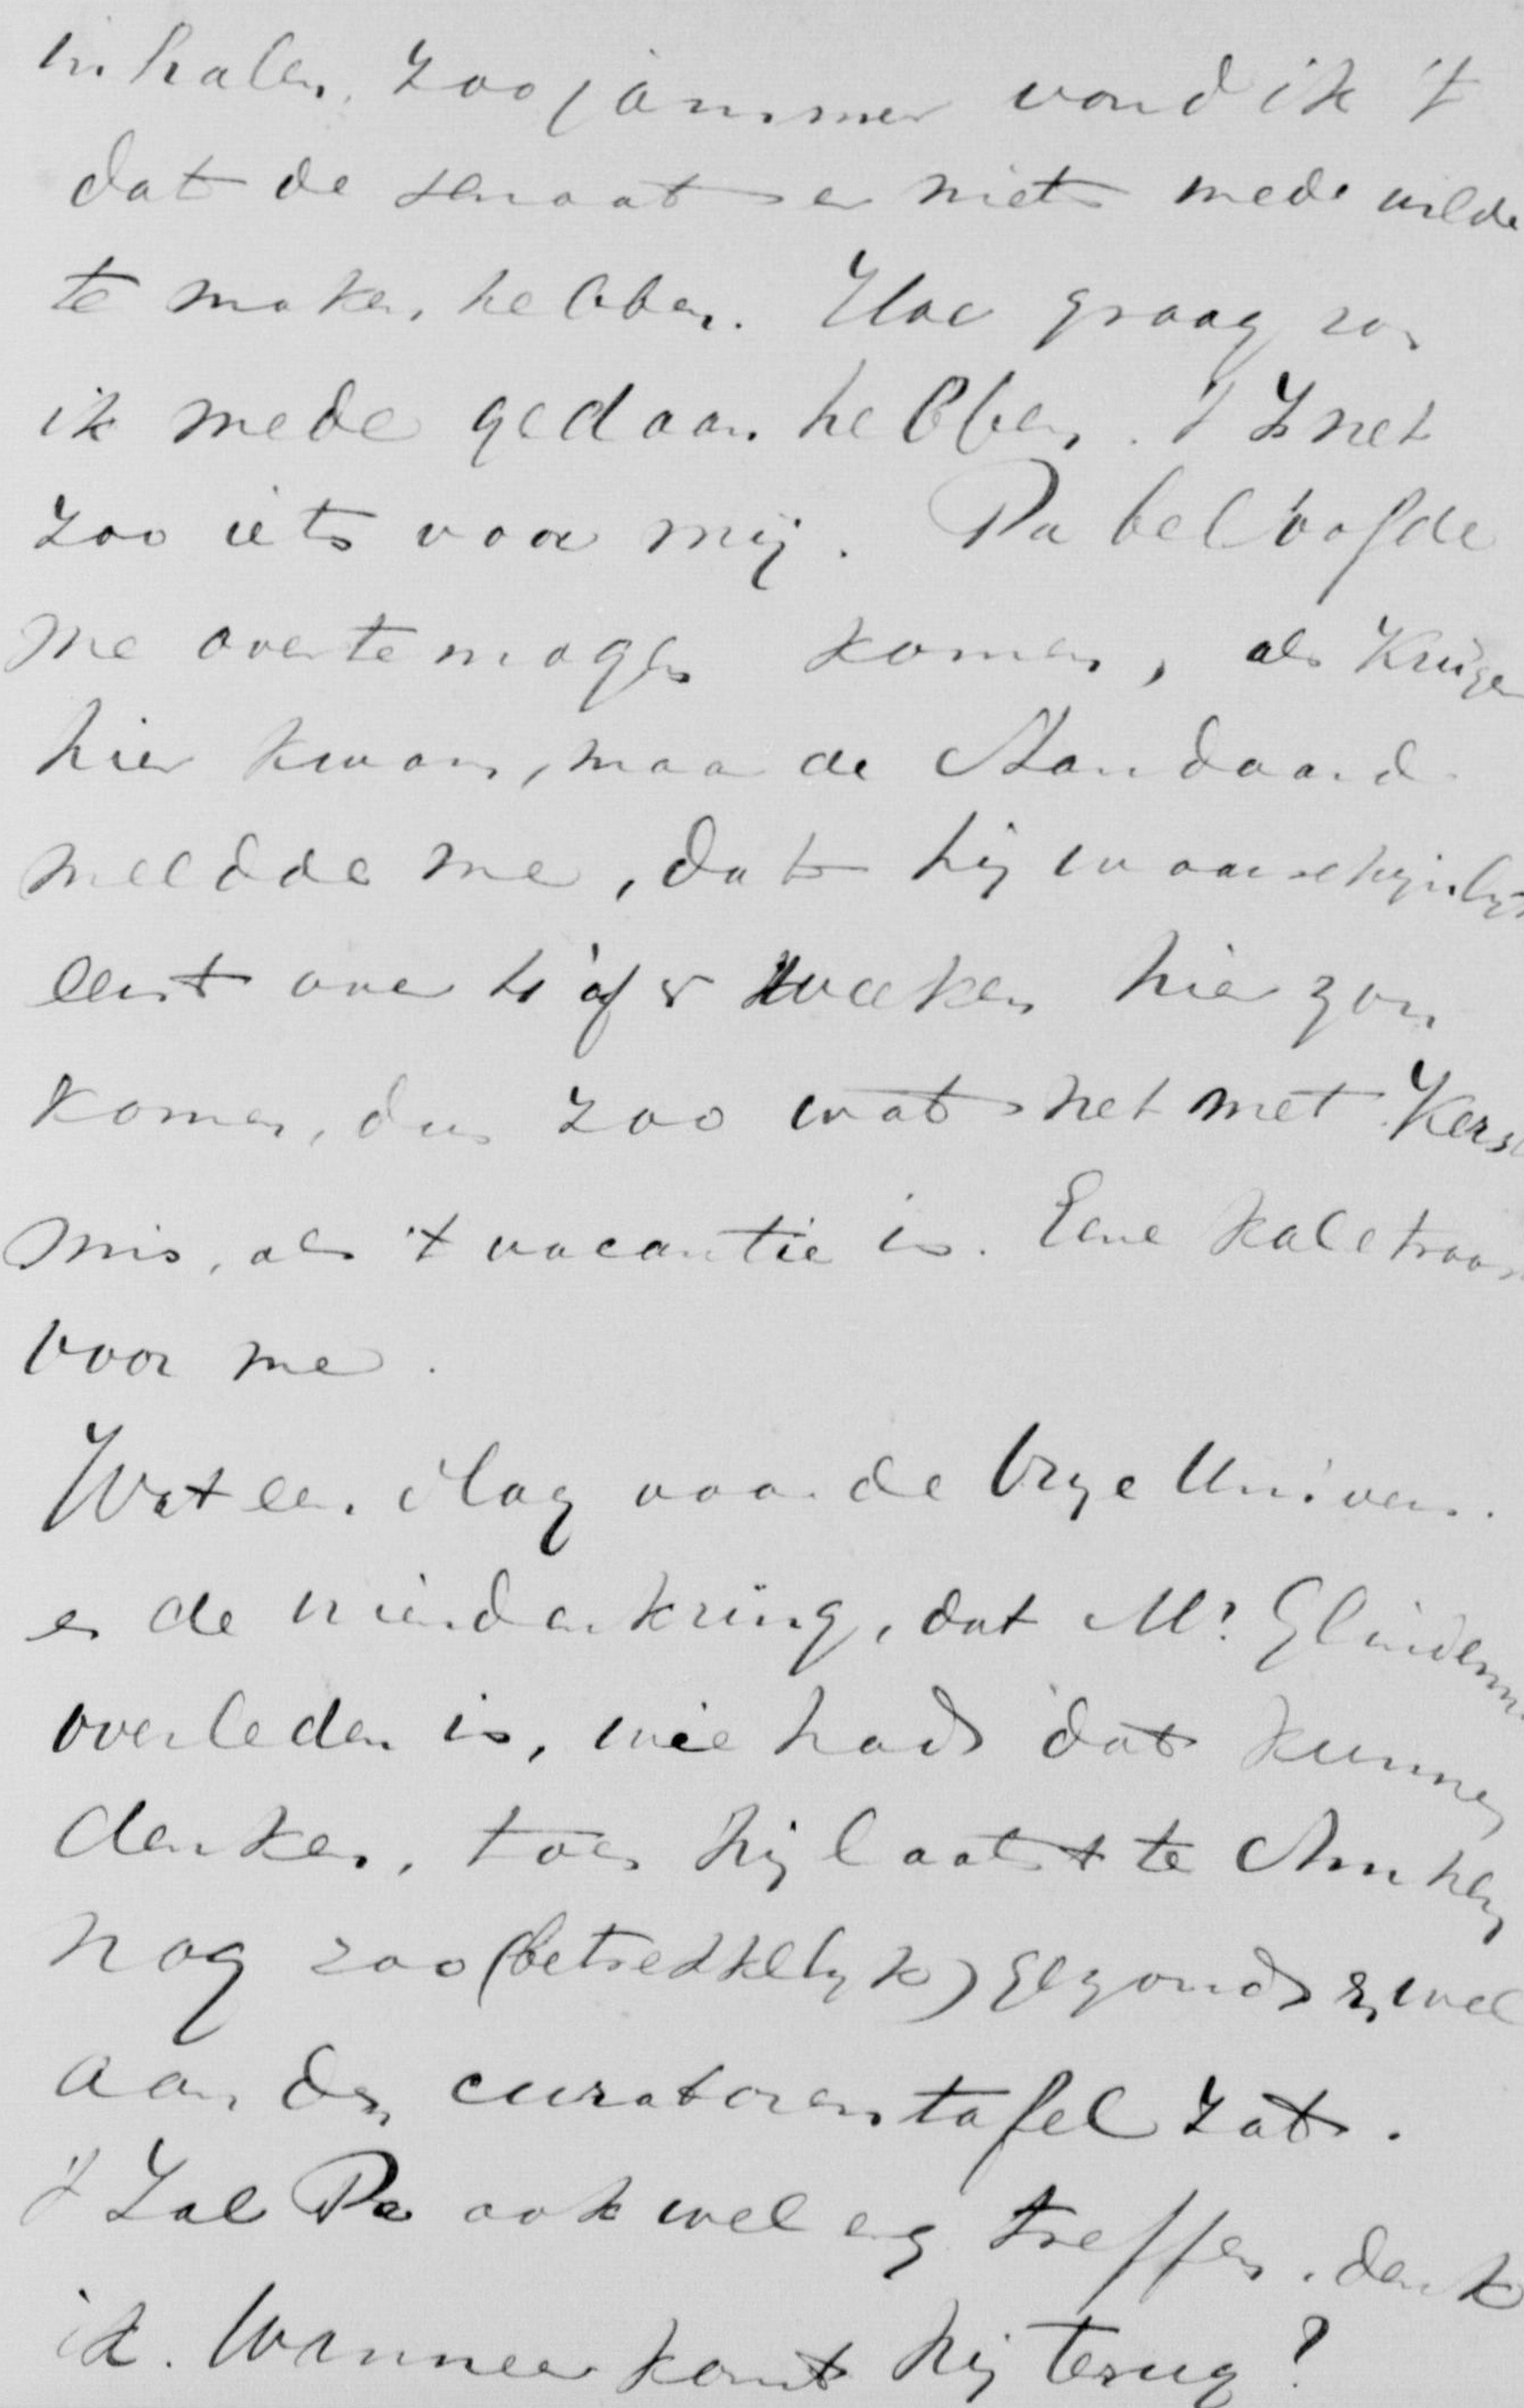 inhalen, zoo jammer vond ik 't
dat de senaat er niets mede wilde
te maken hebben. Hoe graag zou
ik mede gedaan hebben. 't Is net
zoo iets voor mij. Pa beloofde
me over te mogen komen, als Krüger
hier kwam, maar de Standaard
meldde me, dat hij waarschijnlijk
eerst over 4 of 5 weken hier zou
komen, dus zoo wat net met Kerst
mis, als 't vacantie is. Eene kale troost
voor me.
Wat een slag voor de Vrye Univers.
en de vriendenkring, dat Mr.
overleden is, wie had dat kunnen
denken, toen hij laatst te Arnhem
nog zoo (betrekkelyk) gezond & wel
aan den curatorentafel zat.
't Zal Pa ook wel erg treffen, denk
ik. Wanneer komt hij terug?